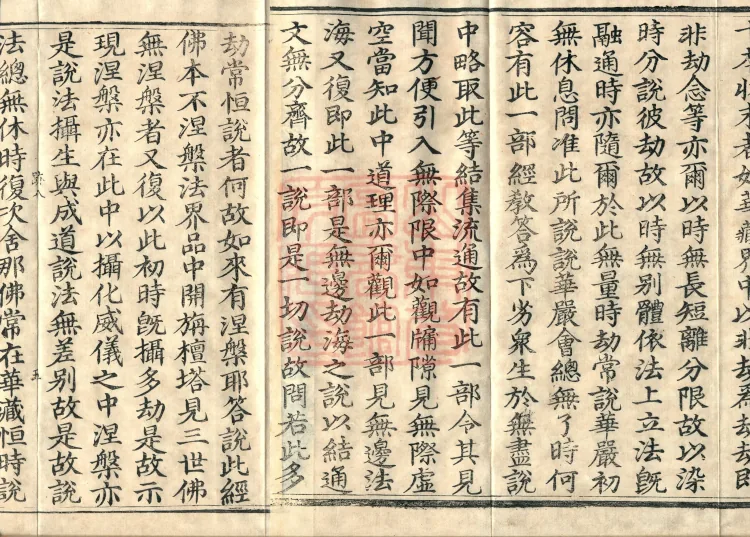 非劫念等亦爾以時無長短離分限故以染
時分說彼劫故以時無別體依法上立法旣
融通時亦隨爾於此無量時劫常說華嚴初
無休息問准此所說說華嚴會總無了時何
容有此一部經敎答爲下劣衆生於無盡說
中略取此等結集流通故有此一部令其見
聞方便引入無際限中如觀牖隙見無際虛
空當知此中道理亦爾觀此一部見無邊法
海又復卽此一部是無邊劫海之說以結通
文無分齊故一說卽是一切說故問若此多
劫常恒說者何故如來有涅槃耶答說此經
佛本不涅槃法界品中開旃檀塔見三世佛
無涅槃者又復以此初時旣攝多劫是故示
現涅槃亦在此中以攝化威儀之中涅槃亦
是說法攝生與成道說法無差別故是故說
五
法總無休時復次舍那佛常在華藏恒時說